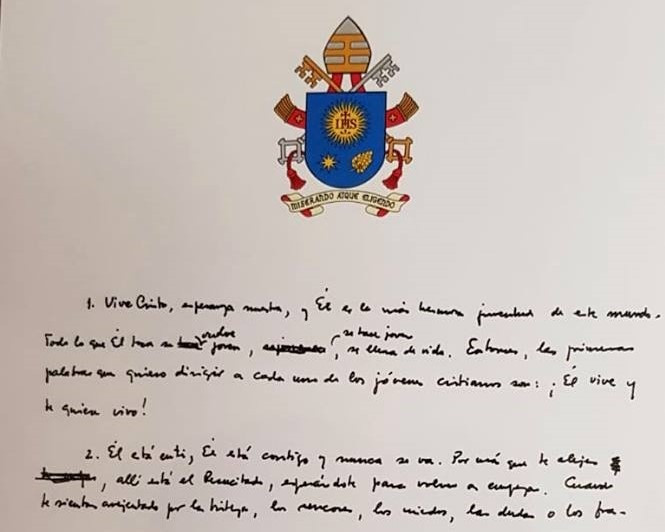 IHS
MISERANDO ATQUE ELIGENDO
1. Vive Cristo, esperanza nuestra, y Él es la más hermosa juventud de este mundo.
vuelve se hace
Todo lo que Él toca se joven, , se llena de vida. Entonces, las primeras
palabras que quiero dirigir a cada uno de los jóvenes cristianos son: ¡Él vive y
te quiere vivo!
2. Él está en ti, Él está contigo y nunca se va. Por más que te alejes
, allí está el Resucitado, esperándote para volver a empezar. Cuando
te sientas avejentado por la tristeza, los rencores, los miedos, las dudas o los fra-